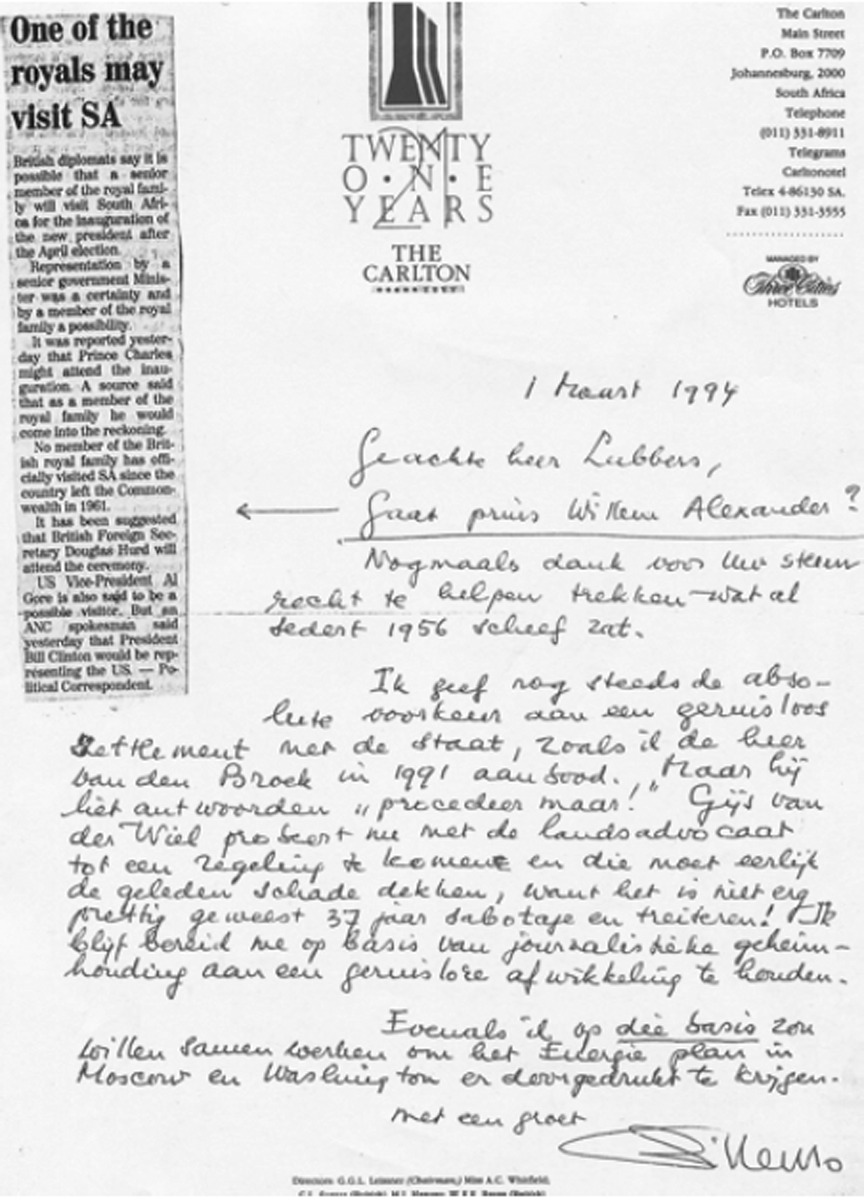 One of the
royals may
visit SA
British diplomats say it is
possible that a senior
member of the royal fami-
ly will visit South Afri-
ca for the inauguration of
the new president after
the April election.
Representation by a
senior government Minis-
ter was a certainty and
by a member of the royal
family a possibility.
It was reported yester-
day that Prince Charles
might attend the inau-
guration. A source said
that as a member of the
royal family he would
come into the reckoning.
No member of the Brit-
ish royal family has offi-
cially visited SA since the
country left the Common-
wealth in 1961.
It has been suggested
that British Foreign Sec-
retary Douglas Hurd will
attend the ceremony.
US Vice-President Al
Gore is also said to be a
possible visitor. But an
ANC spokesman said
yesterday that President
Bill Clinton would be rep-
resenting the US. — Po-
litical Correspondent.
21
TWENTY
O·N·E
YEARS
THE
CARLTON
The Carlton
Main Street
P.O. Box 7709
Johannesburg, 2000
South Africa
Telephone
(011) 331-8911
Telegrams
Carltonotel
Telex 4-86130 SA.
Fax (011) 331-3555
MANAGED BY
Three Cities
HOTELS
1 Maart 1994
Geachte heer Lubbers,
Gaat prins Willem Alexander?
Nogmaals dank voor Uw steun
recht te helpen trekken wat al
sedert 1956 scheef zat.
Ik geef nog steeds de abso-
lute voorkeur aan een geruisloos
settlement met de Staat, zoals ik de heer
van den Broek in 1991 aanbood. Maar hij
liet antwoorden „procedeer maar!" Gijs van
der Wiel probeert nu met de landsadvocaat
tot een regeling te komen en die moet eerlijk
de geleden schade dekken, want het is niet erg
prettig geweest 37 jaar sabotage en treiteren! Ik
blijf bereid me op basis van journalistieke geheim-
houding aan een geruisloze afwikkeling te houden.
Evenals ik op die basis zou
willen samenwerken om het Energie plan in
Moscow en Washington er doorgedrukt te krijgen.
Met een groet
Directors: G.G.L. Leissner (Chairman,) Miss A.C. Whitfield,